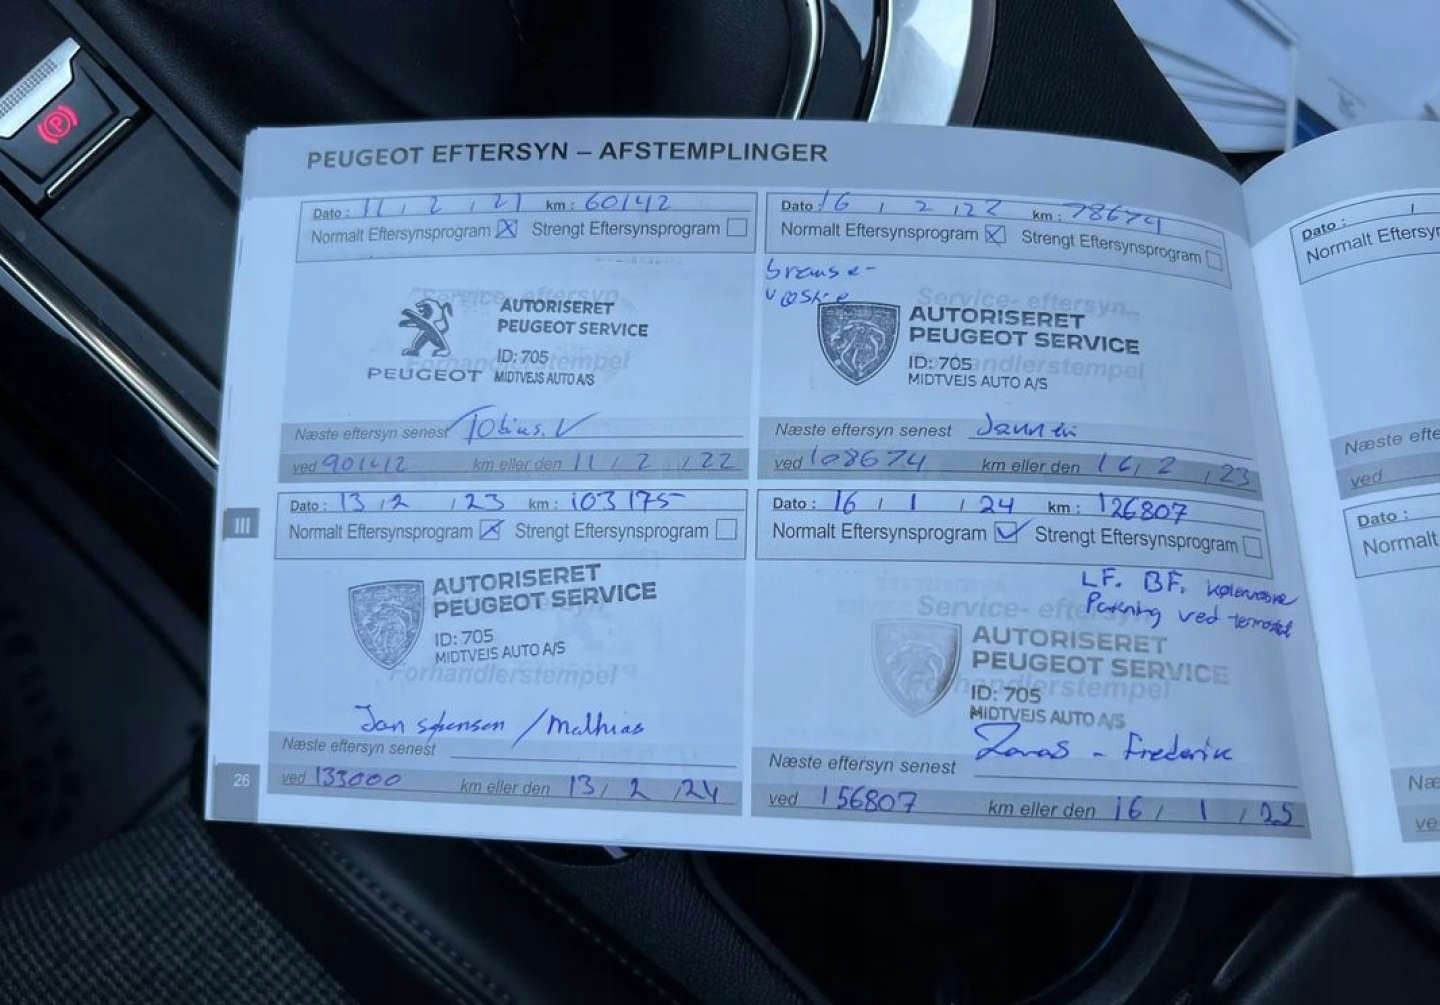 PEUGEOT EFTERSYN – AFSTEMPLINGER
Dato : 11 / 2 / 21 km : 60142
Normalt Eftersynsprogram X Strengt Eftersynsprogram
Service- eftersyn
AUTORISERET
PEUGEOT SERVICE
ID: 705
PEUGEOT MIDTVEJS AUTO A/S
Forhandlerstempel
Næste eftersyn senest Tobias. V
ved 90142 km eller den 11 / 2 / 22
Dato : 16 / 2 / 22 km : 78674
Normalt Eftersynsprogram X Strengt Eftersynsprogram
bremse-
væske
Service- eftersyn
AUTORISERET
PEUGEOT SERVICE
ID: 705
MIDTVEJS AUTO A/S
Forhandlerstempel
Næste eftersyn senest
ved 108674 km eller den 16 / 2 / 23
III
Dato : 13 / 2 / 23 km : 103175
Normalt Eftersynsprogram X Strengt Eftersynsprogram
AUTORISERET
PEUGEOT SERVICE
ID: 705
MIDTVEJS AUTO A/S
Forhandlerstempel
Jan Sørensen / Mathias
Næste eftersyn senest
ved 133000 km eller den 13 / 2 / 24
26
Dato : 16 / 1 / 24 km : 126807
Normalt Eftersynsprogram ✓ Strengt Eftersynsprogram
LF. BF. kølervæske
Pakning ved termostat
Service- eftersyn
AUTORISERET
PEUGEOT SERVICE
Forhandlerstempel
ID: 705
MIDTVEJS AUTO A/S
Jonas - Frederik
Næste eftersyn senest
ved 156807 km eller den 16 / 1 / 25
Dato : /
Normalt Eftersyn
Næste efte
ved
Dato :
Normalt
Næ
ve
P